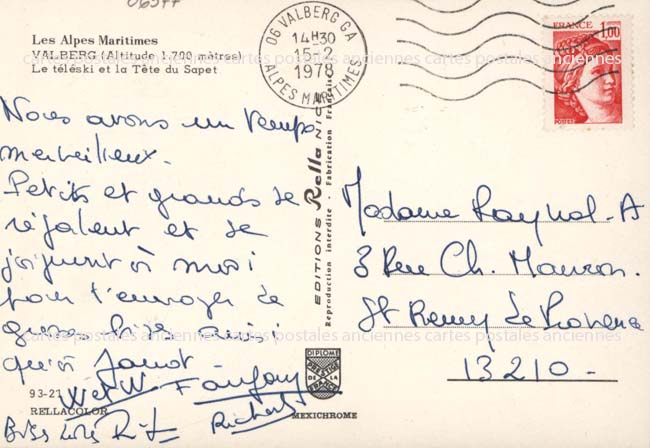 06577
Les Alpes Maritimes
VALBERG (Altitude 1.700 mètres)
Le téléski et la Tête du Sapet
06 VALBERG GA
14H30
15-2
1978
ALPES MARITIMES
FRANCE
1,00
POSTES
Nous avons un temps
merveilleux.
Petits et grands se
régalent et se
joignent à moi
pour t'envoyer de
grosses bises ainsi
qu'à
EDITIONS Rella NICE
Reproduction interdite - Fabrication Française
Madame Raynal-A
3 Rue Ch. Mauron.
St Remy de Provence
13210 -
cartes postales anciennes cartes postales anciennes cartes postales anciennes
cartes postales anciennes cartes postales anciennes cartes postales anciennes
DIPLOME
PRESTIGE
DE LA
FRANCE
93-21
RELLACOLOR
MEXICHROME
Richard